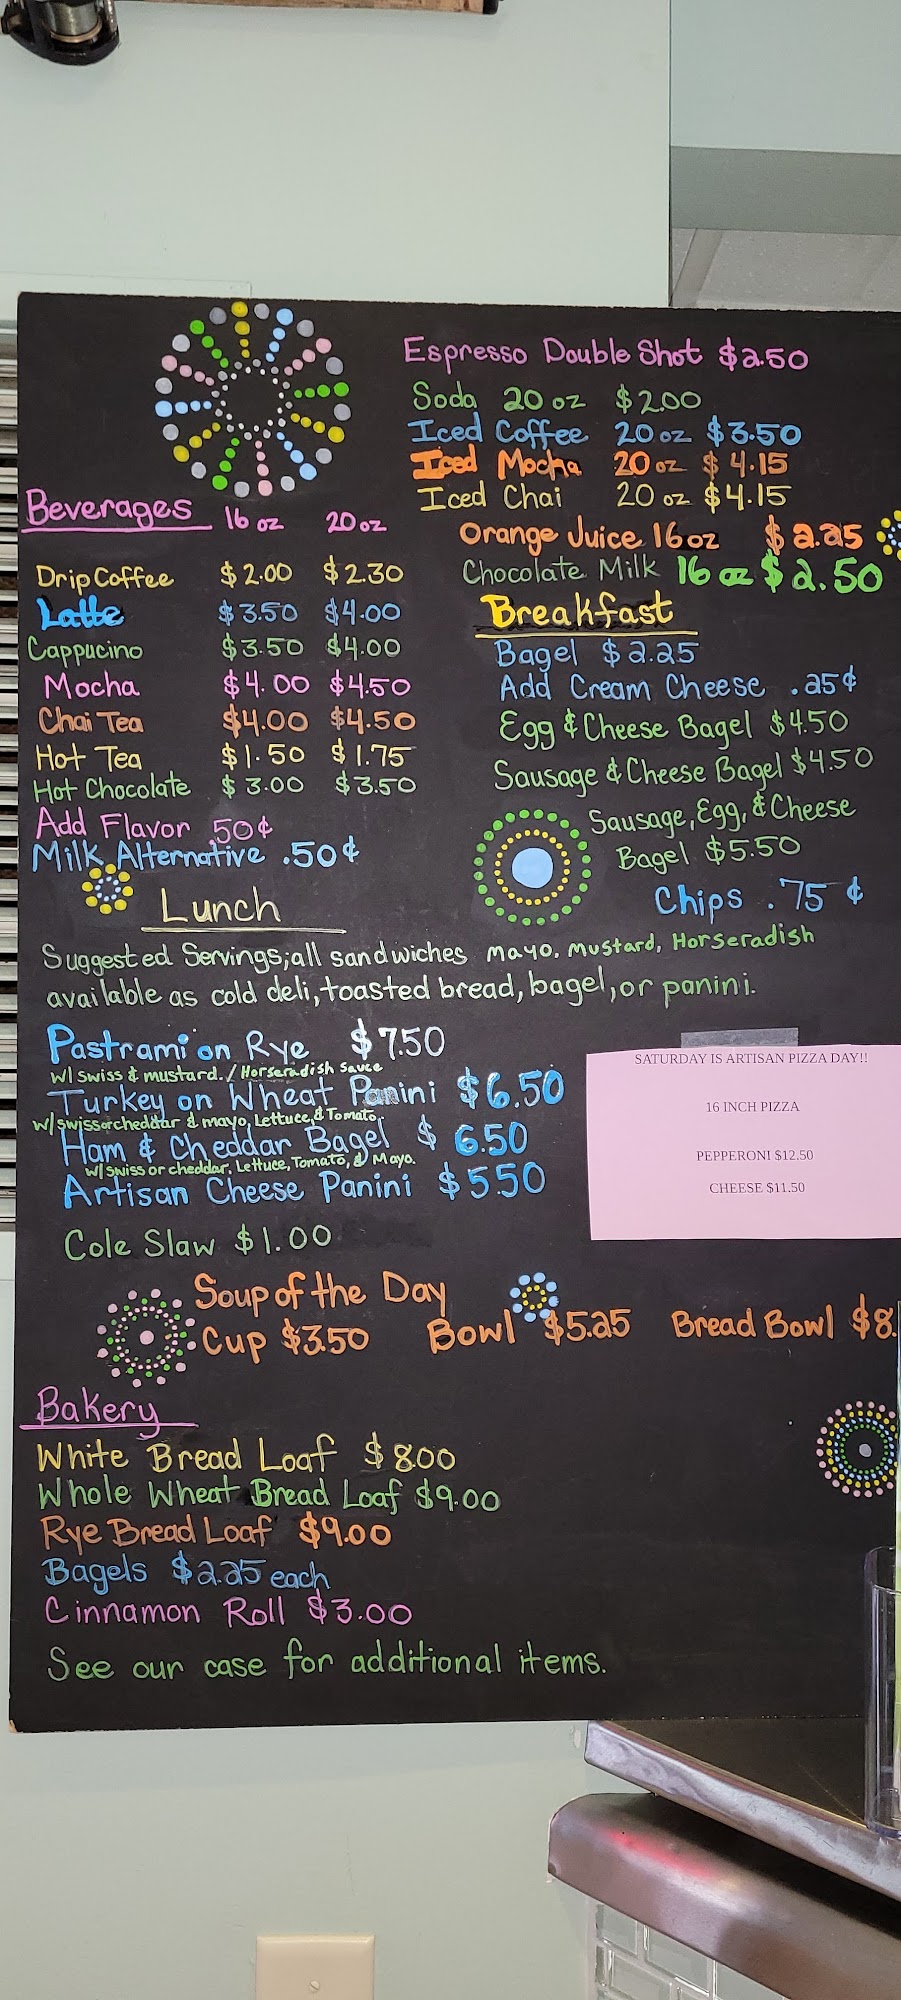 Espresso Double Shot $2.50
Soda 20 oz $2.00
Iced Coffee 20 oz $3.50
Iced Mocha 20 oz $4.15
Iced Chai 20 oz $4.15
Orange Juice 16 oz $2.25
Chocolate Milk 16 oz $2.50
Beverages 16 oz 20 oz
Drip Coffee $2.00 $2.30
Latte $3.50 $4.00
Cappucino $3.50 $4.00
Mocha $4.00 $4.50
Chai Tea $4.00 $4.50
Hot Tea $1.50 $1.75
Hot Chocolate $3.00 $3.50
Add Flavor .50¢
Milk Alternative .50¢
Breakfast
Bagel $2.25
Add Cream Cheese .25¢
Egg & Cheese Bagel $4.50
Sausage & Cheese Bagel $4.50
Sausage, Egg, & Cheese
Bagel $5.50
Chips .75¢
Lunch
Suggested Servings; all sandwiches mayo, mustard, Horseradish
available as cold deli, toasted bread, bagel, or panini.
Pastrami on Rye $7.50
w/ Swiss & mustard. / Horseradish sauce
Turkey on Wheat Panini $6.50
w/ swiss or cheddar & mayo, Lettuce, & Tomato.
Ham & Cheddar Bagel $6.50
w/ swiss or cheddar, Lettuce, Tomato, & Mayo.
Artisan Cheese Panini $5.50
Cole Slaw $1.00
SATURDAY IS ARTISAN PIZZA DAY!!
16 INCH PIZZA
PEPPERONI $12.50
CHEESE $11.50
Soup of the Day
Cup $3.50 Bowl $5.25 Bread Bowl $8.
Bakery
White Bread Loaf $8.00
Whole Wheat Bread Loaf $9.00
Rye Bread Loaf $9.00
Bagels $2.25 each
Cinnamon Roll $3.00
See our case for additional items.